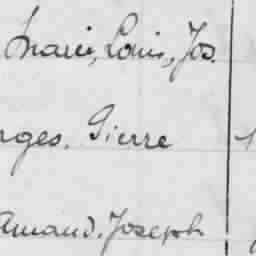 Marie, Louis, Jos.
rges. Pierre
Amand. Joseph